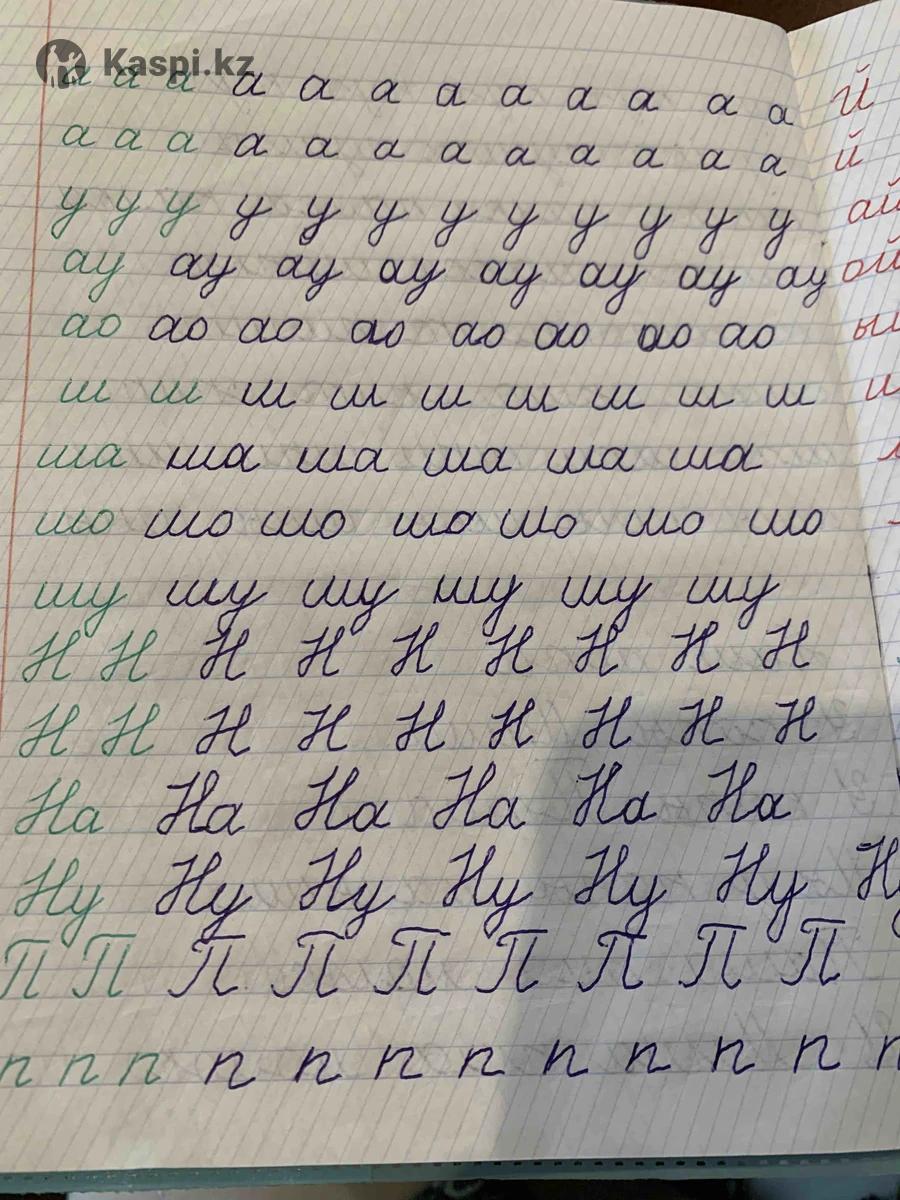 Kaspi.kz
а а а а а а а а а а а а
а а а а а а а а а а а а
у у у у у у у у у у у у
ау ау ау ау ау ау ау ау
ао ао ао ао ао ао ао ао
ш ш ш ш ш ш ш ш ш
ша ша ша ша ша ша
шо шо шо шо шо шо шо
шу шу шу шу шу шу
Н Н Н Н Н Н Н Н Н
Н Н Н Н Н Н Н Н Н
На На На На На На
Ну Ну Ну Ну Ну Ну
П П П П П П П П П
п п п п п п п п п п п
Й
й
ай
ой